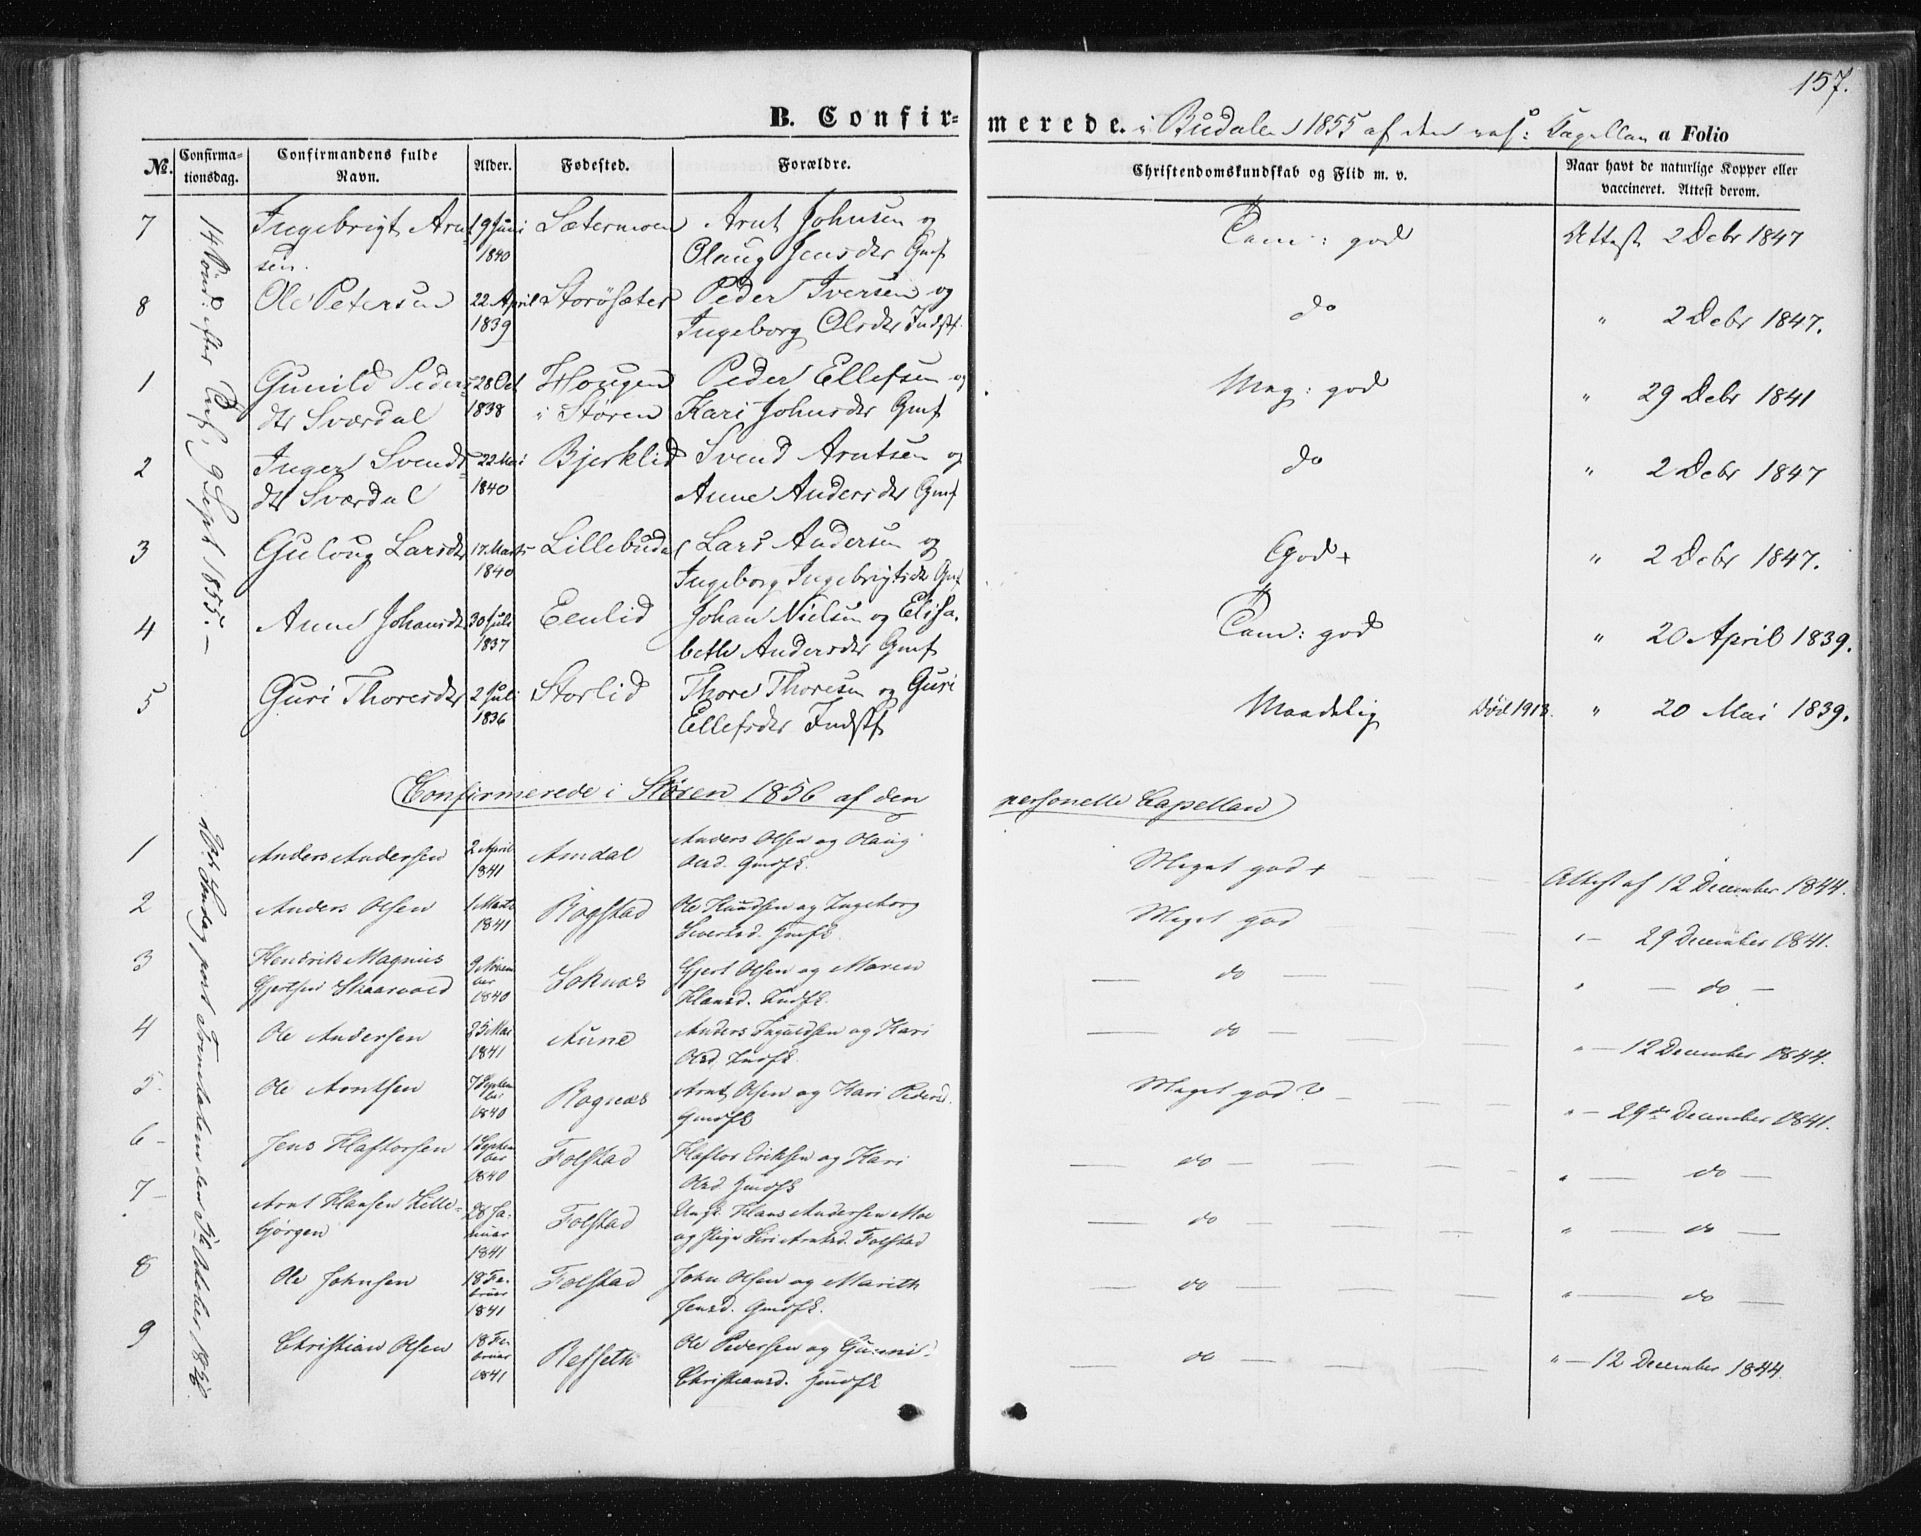 157.
B. Confirmerede. i Budalen 1855 af den : Capellan a Folio
No. Confirmationsdag. Confirmandens fulde Navn. Alder. Fødested. Forældre. Christendomskundskab og Flid m. v. Naar havt de naturlige Kopper eller vaccineret. Attest derom.
14 Sønd: efter Trf, 9 Sept 1855. –
7 Ingebrigt Arntsen. 19 Juni 1840 Sætermoen Arnt Johnsen og Olaug Jensdtr Gmf Tem: god Attest 2 Debr 1847
8 Ole Petersen 22 April 1839 Storøsæter Peder Iversen og Ingeborg Olsdtr Indstf. do " 2 Debr 1847.
1 Gunild Pedersdtr Sværdal 28 Oct 1838 Hougen i Støren Peder Ellefsen og Kari Johnsdtr Gmf Meg: god " 29 Debr 1841
2 Inger Svendsdtr Sværdal 22 Mai 1840 Bjerklid Svend Arntsen og Anne Andersdtr Gmf do " 2 Debr 1847
3 Guloug Larsdtr 17 Marts 1840 Lillebudal Lars Andersen og Ingeborg Ingebrigtsdtr Gmf God + " 2 Debr 1847.
4 Anne Johansdtr 30 Juli 1837 Eenlid Johan Nielsen og Elisabeth Andersdtr Gmf Tem: god " 20 April 1839.
5 Guri Thoresdtr 2 Juli 1836 Storlid Thore Thoresen og Guri Ellefsdtr Indstf Maadelig Død 1913. " 20 Mai 1839.
Confirmerede i Støren 1856 af den personelle Capellan
Søndag post Trinitatem den October 1856.
1 Anders Andersen 2 April 1841 Amdal Anders Olsen og Olaug Olsd. Gmdsf. Meget god + Attest af 12 December 1844.
2 Anders Olsen 1 Marts 1841 Rogstad Ole Knudsen og Ingeborg Sivertsd. Gmfk Meget god " – 29 December 1841.
3 Hendrik Magnus Gjertsen Skaarvold 9 November 1840 Soknæs Gjert Olsen og Maren Hansd. Indsf. — do — " — do —
4 Ole Andersen 25 Mai 1841 Aune Anders Ingvaldsen og Kari Olsd. Indsf. — do — " – 12 December 1844.
5 Ole Arntsen 7 September 1840 Rognæs Arnt Olsen og Kari Pedersd. Gmdsf Meget god? " – 29de December 1841.
6 – Jens Haftorsen 1 September 1840 Folstad Haftor Eriksen og Kari Olsd. Gmdsf — do — " do —
7 – Arnt Hansen Lillebjørgen 28 Januar 1841 Folstad Ungk. Hans Andersen Moe og Pige Siri Arntsd. Folstad — do — " — do —
8 Ole Johnsen 18 Februar 1841 Folstad John Olsen og Marith Jensd. Gmdsf. — do — " — do —
9 Christian Olsen 18 Februar 1841 Refseth Ole Pedersen og Gunnil Christiansd. Gmdsf — do — " – 12 December 1844.